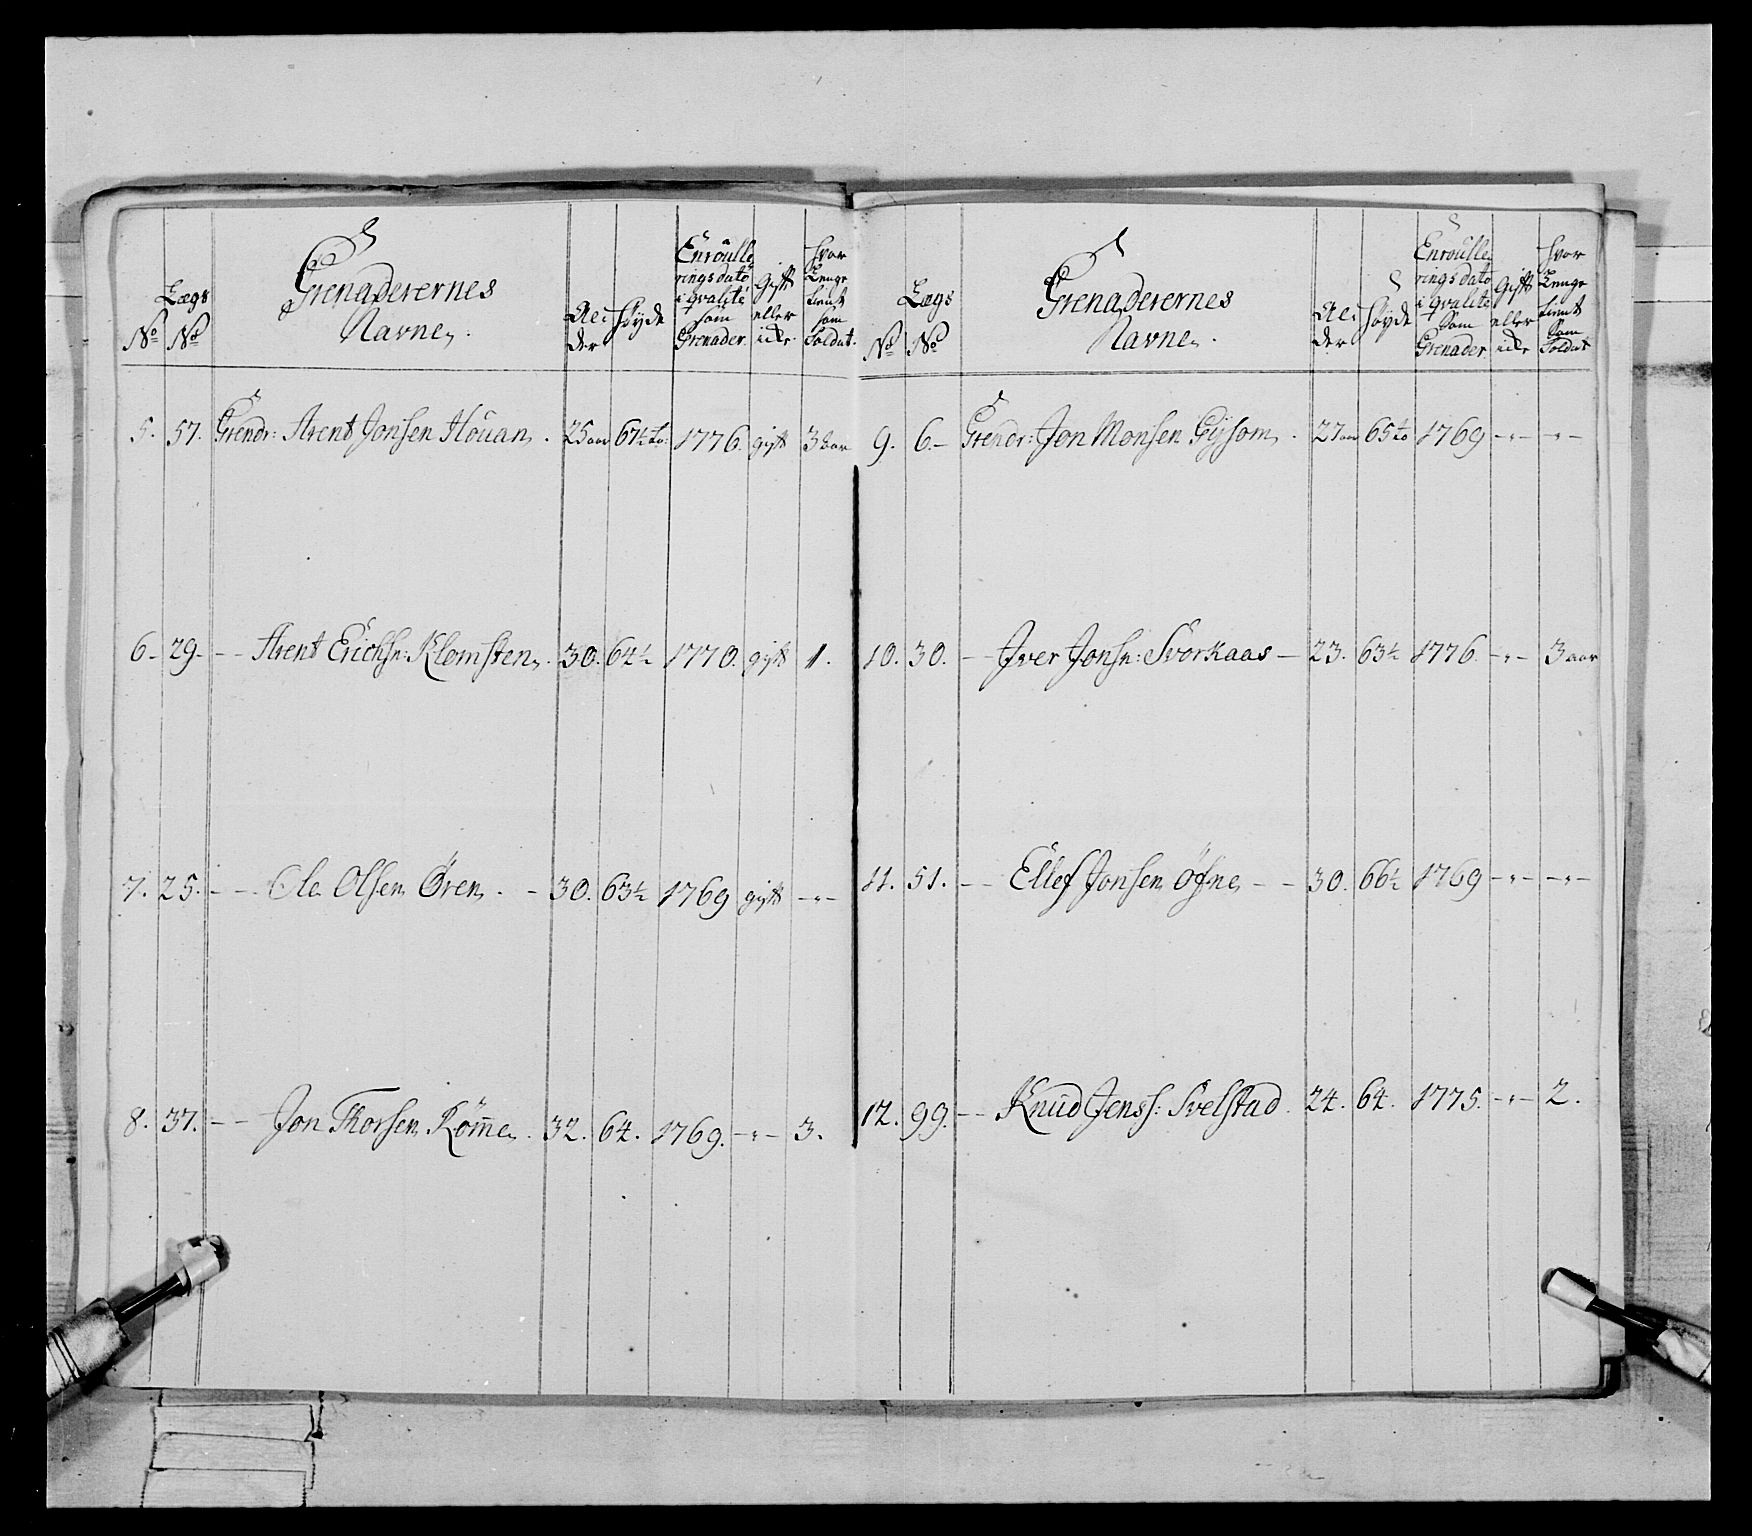 No
Lægs No
Grenaderernes Navne.
Alder
Høyde
Enroulleringsdato i qvalité som Grenader
Gift eller icke
Hvor Lenge tient som Soldat.
5. 57. Grendr: Arent Jonsen Houan. 25 aar 67½ to. 1776. gift 3 aar
6 - 29 - - Arent Erichsn: Klomsten. 30. 64½ 1770. gift 1.
7. 25. - - Ole Olsen Ören. - 30. 63½ 1769 gift - " -
8. 37. - - Jon Thorsen Röm̄e. 32. 64. 1769. - " - 3.
No
Lægs No
Grenaderernes Navne.
Alder
Høyde
Enroulleringsdato i qvalité som Grenader
Gift eller icke
Hvor Lenge tient som Soldat
9. 6. - Grendr: Jon Monsen Gysom. 27 aar 65 to 1769 - " - - " -
10. 30. - - Iver Jonsn: Svorkaas - 23. 63½ 1776. - " - 3 aar
11. 51. - - Ellef Jonsen Öfne - - 30. 66½ 1769 - " - - " -
12. 99. - - Knud Jenss: Svelstad. 24. 64. 1775. - " - 2.